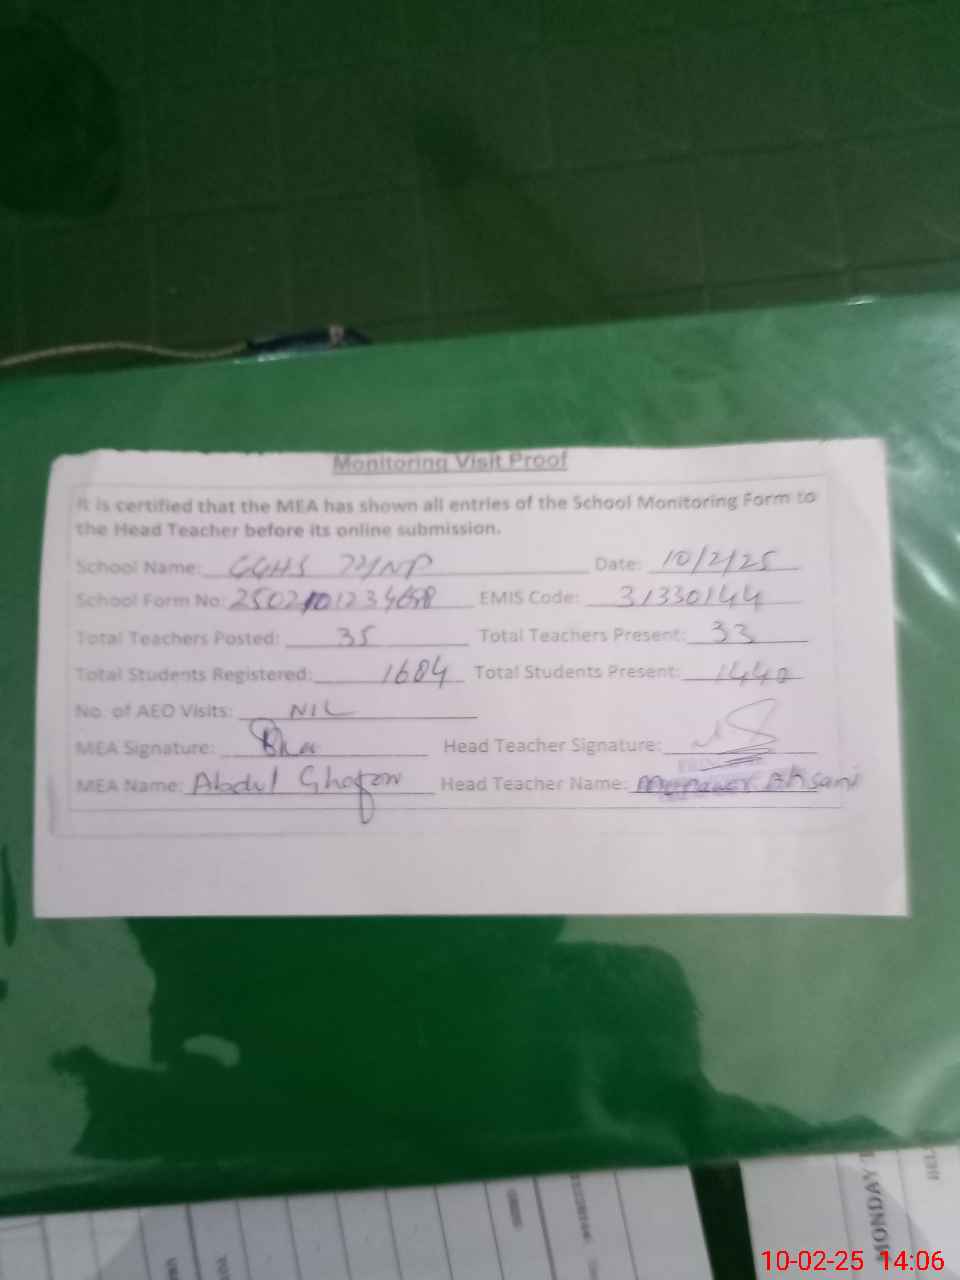 Monitoring Visit Proof
It is certified that the MEA has shown all entries of the School Monitoring Form to
the Head Teacher before its online submission.
School Name: GGHS 72/NP Date: 10/2/25
School Form No: EMIS Code: 31330144
Total Teachers Posted: 35 Total Teachers Present: 33
Total Students Registered: 1684 Total Students Present: 1440
No. of AEO Visits: NIL
MEA Signature: Head Teacher Signature:
MEA Name: Abdul Ghafoor Head Teacher Name: Ahsani
MONDAY
10-02-25 14:06